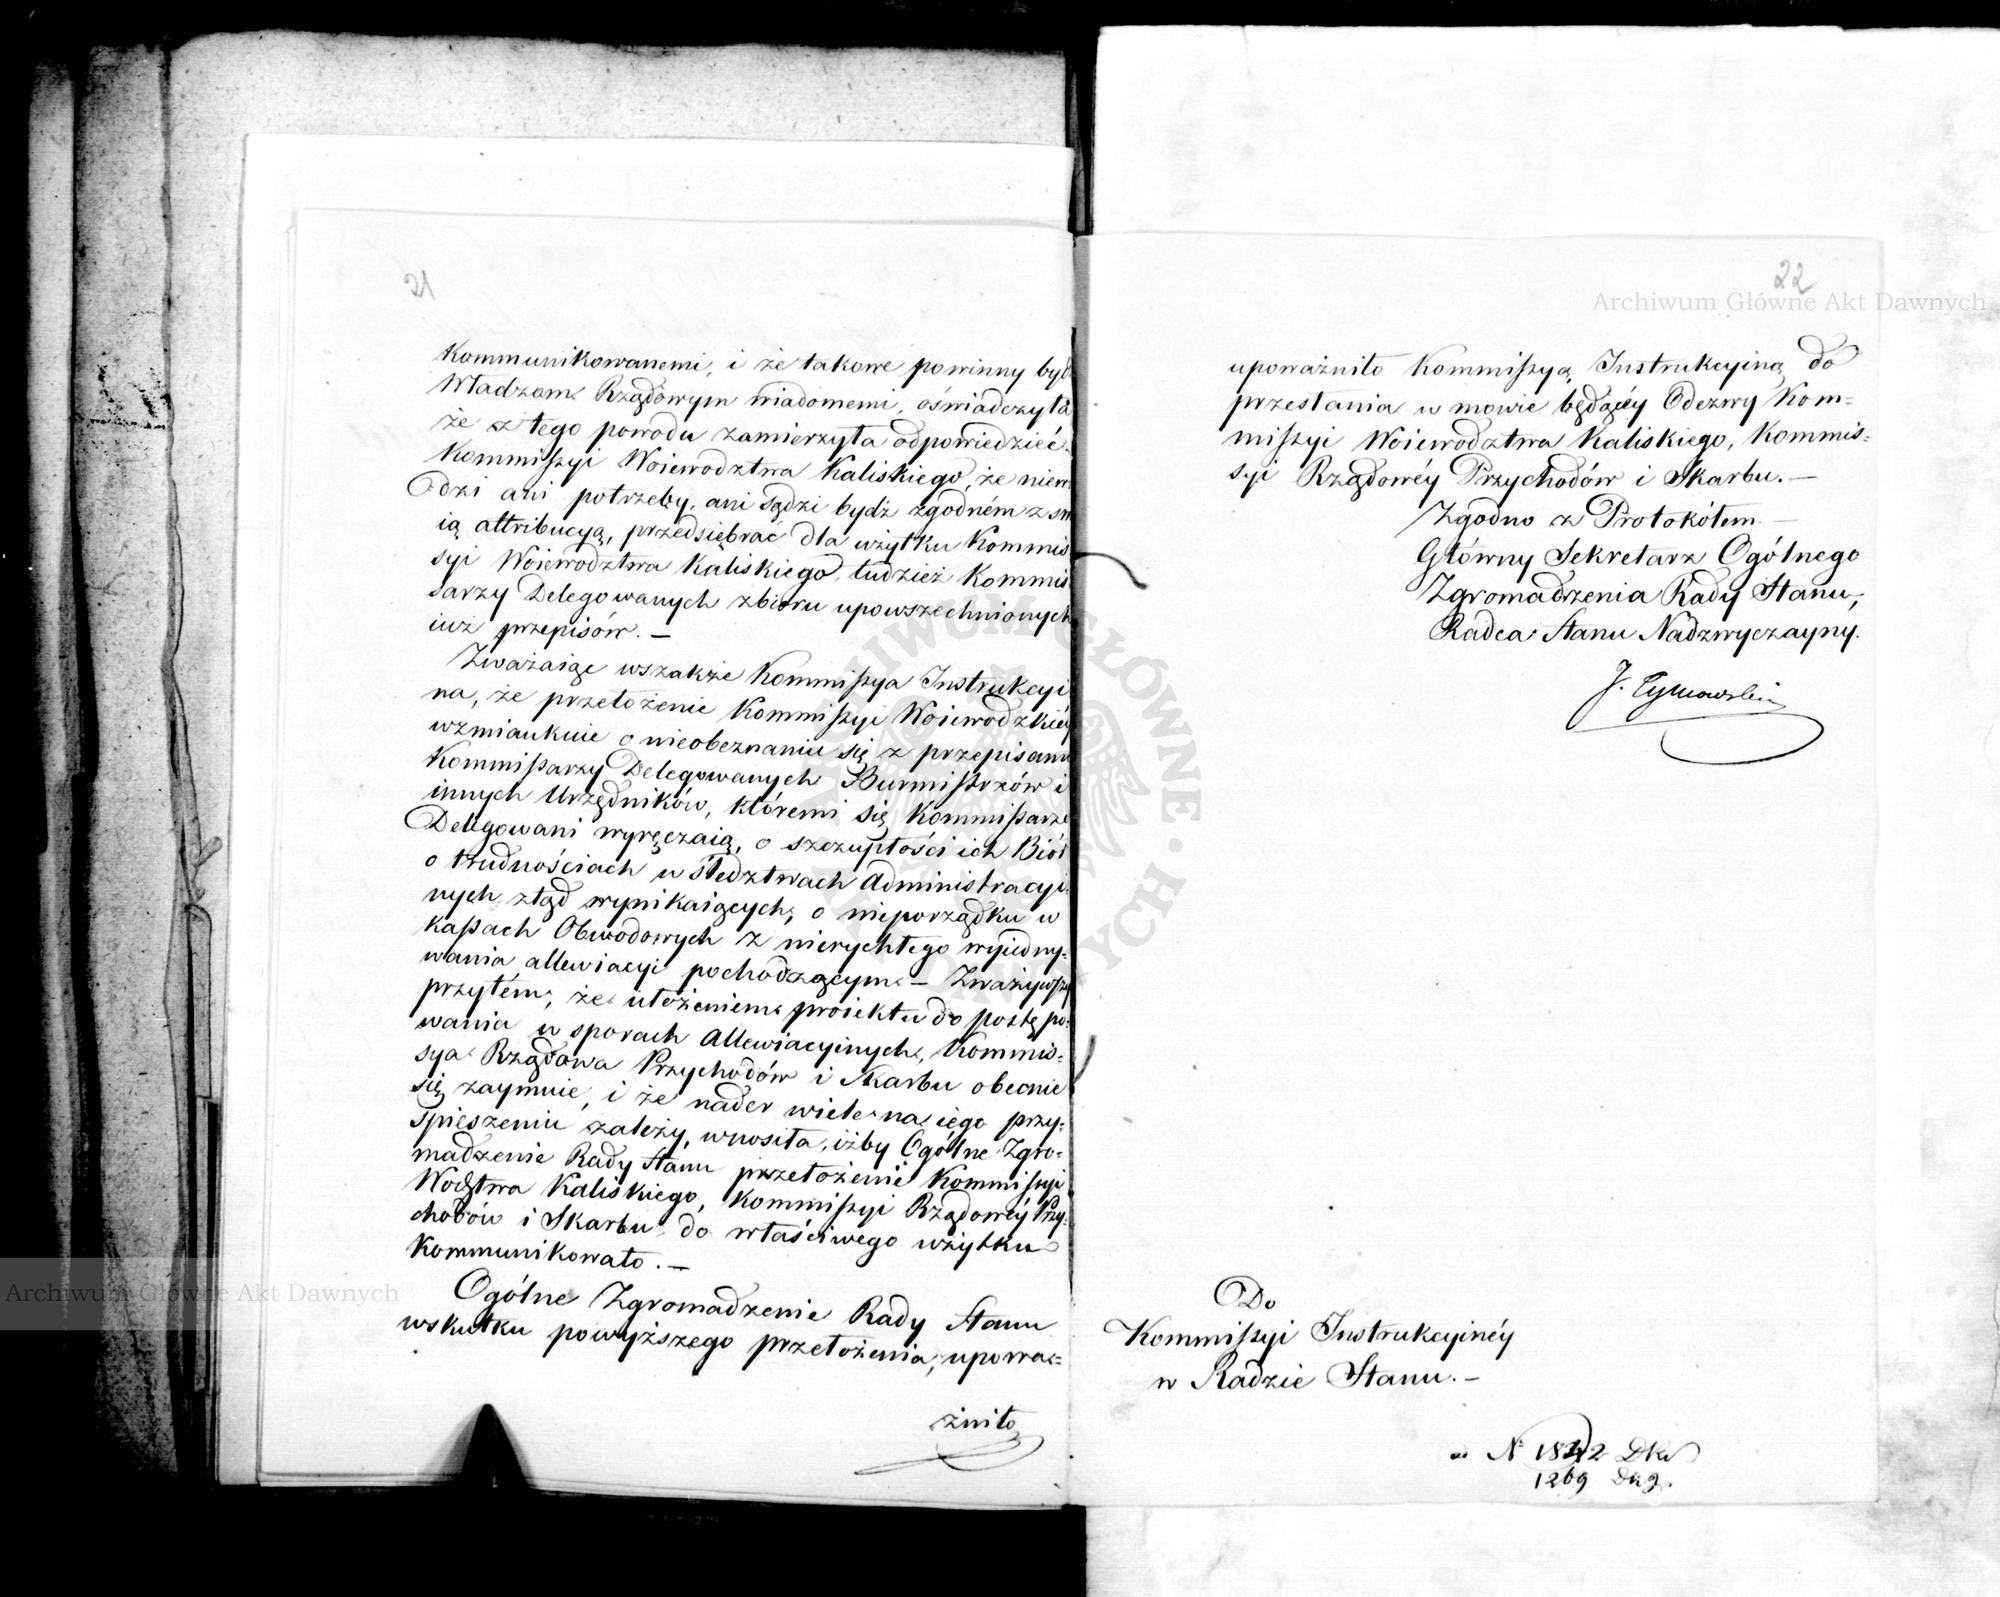 21
Kommunikowanemi, i że takowe powinny być
Władzom Rządowym wiadomemi, oświadczyła
że z tego powodu zamierzyła odpowiedzieć
Kommissyi Woiewodztwa Kaliskiego, że niewi
dzi ani potrzeby, ani sądzi bydź zgodném z swo
ią attribucyą, przedsiębrać dla użytku Kommis
syi Woiewodztwa Kaliskiego, tudzież Kommis
sarzy Delegowanych zbioru upowszechnionych
iuż przepisów. —
Zważaiąc wszakże Kommissya Instrukcyi
na, że przełożenie Kommissyi Woiewodzkiéy
wzmiankuie o nieobeznaniu się z przepisami
Kommissarzy Delegowanych Burmistrzów i
innych Urzędników, któremi się Kommissarze
Delegowani wyręczaią, o szczupłości ich Biór
o trudnościach w śledztwach Administracyi
nych ztąd wynikaiących, o nieporządku w
kassach Obwodowych z nierychłego wyiedny=
wania allewiacyi pochodzącym — Zważywszy
przytém, że ułożeniem proiektu do postępo=
wania w sporach Allewiacyinych, Kommis=
sya Rządowa Przychodów i Skarbu obecnie
się zaymuie, i że nader wiele na iego przy=
spieszeniu zależy, wnosiła, iżby Ogólne Zgro=
madzenie Rady Stanu przełożenie Kommissyi
Wodztwa Kaliskiego, Kommissyi Rządowéy Przy=
chodów i Skarbu do właściwego użytku
Kommunikowało. —
Ogólne Zgromadzenie Rady Stanu
wskutku powyższego przełożenia, upowa=
żniło
22
upoważniło Kommissyą Instrukcyiną do
przesłania w mowie będącéy Odezwy Kom=
missyi Woiewodztwa Kaliskiego, Kommis=
syi Rządowéy Przychodów i Skarbu. —
Zgodno z Protokółem —
Główny Sekretarz Ogólnego
Zgromadzenia Rady Stanu,
Radca Stanu Nadzwyczayny.
J. Tymowski
Do
Kommissyi Instrukcyinéy
w Radzie Stanu. —
N° 1842
1269
Archiwum Główne Akt Dawnych
Archiwum Główne Akt Dawnych
ARCHIWUM GŁÓWNE AKT DAWNYCH